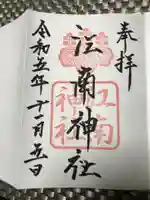 奉拝
江南神社
江南
神社
令和五年十一月五日